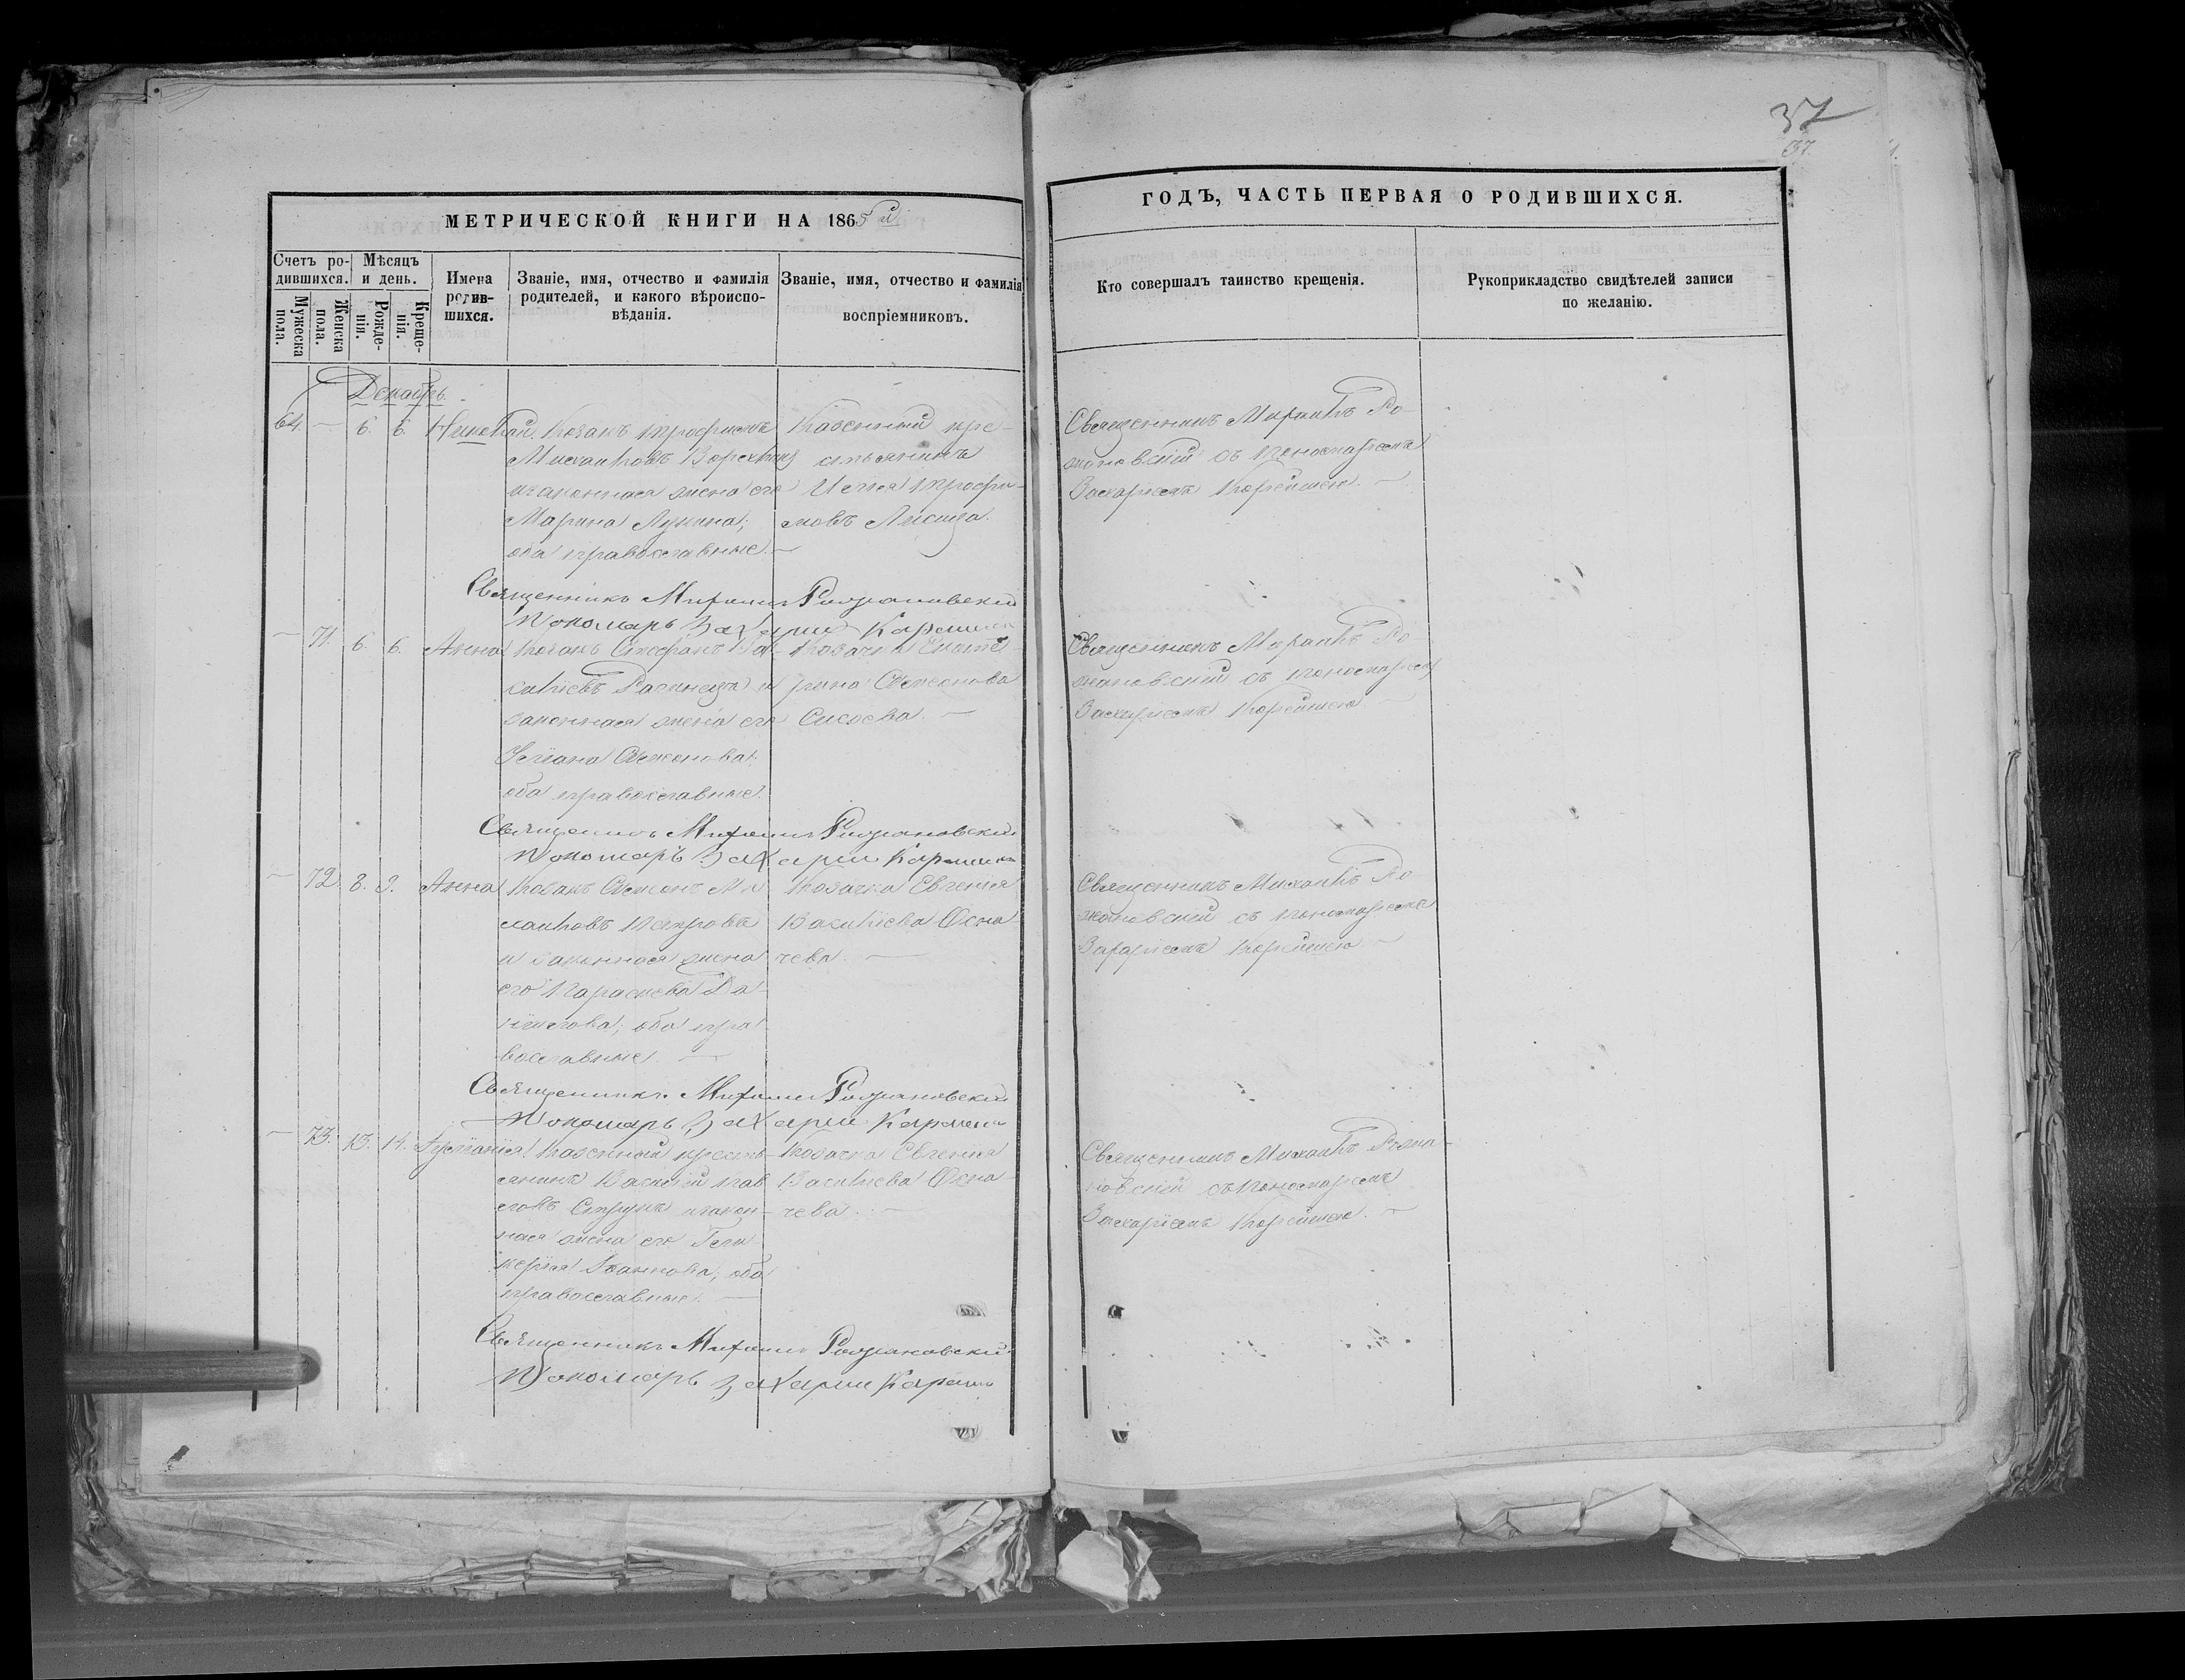 37
37.
МЕТРИЧЕСКОЙ КНИГИ НА 1865 й
ГОДЪ, ЧАСТЬ ПЕРВАЯ О РОДИВШИХСЯ.
Счетъ ро-
дившихся.
Мужеска
пола.
Женска
пола.
Мѣсяцъ
и день.
Рожде-
нія.
Креще-
нія.
Имена
родив-
шихся.
Званіе, имя, отчество и фамилія
родителей, и какого вѣроиспо-
вѣданія.
Званіе, имя, отчество и фамилія
воспріемниковъ.
Кто совершалъ таинство крещенія.
Рукоприкладство свидѣтелей записи
по желанію.
Декабрь.
64. — 6. 6.
Козакъ Трофимъ
Михаиловъ
и законная жена его
Марина Лукина;
оба православные. —
Казенный кре-
стьянинъ
Илья Трофи-
мовъ Лисица.
Священникъ Михаилъ Ро-
мановскій съ пономаремъ
Захаріемъ
Священникъ Михаилъ Романовскій
Пономарь Захарій
— 71. 6. 6. Анна
Козакъ Стефанъ Ва-
силіевъ и
законная жена его
Уліана Симонова;
оба православные.
Козачка Екате-
рина Симонова
Сисоева. —
Священникъ Михаилъ Ро-
мановскій съ пономаремъ
Захаріемъ
Священникъ Михаилъ Романовскій
Пономарь Захарій
— 72. 8. 9. Анна
Козакъ Симонъ Ми-
хаиловъ Петровъ
и законная жена
его Параскева Да-
ніилова; оба пра-
вославные. —
Козачка Евгенія
Василіева Осна-
чева. —
Священникъ Михаилъ Ро-
мановскій съ пономаремъ
Захаріемъ
Священникъ Михаилъ Романовскій
Пономарь Захарій
— 73. 13. 14.
Казенный кресть-
янинъ Василій Пав-
ловъ и закон-
ная жена его Гли-
керія Іоаннова; оба
православные. —
Козачка Евгенія
Василіева Осна-
чева. —
Священникъ Михаилъ Рома-
новскій съ пономаремъ
Захаріемъ
Священникъ Михаилъ Романовскій
Пономарь Захарій